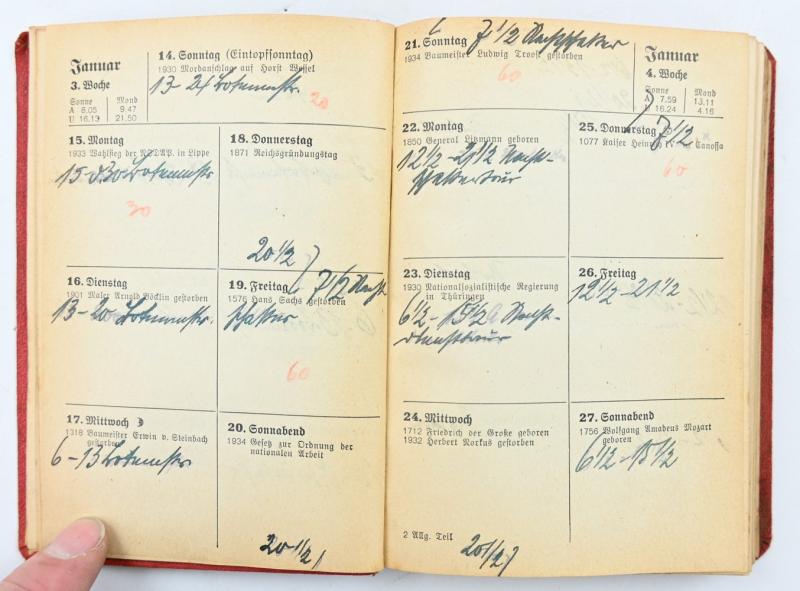 Januar
3. Woche
Sonne Mond
A 8.05 9.47
U 16.13 21.50
14. Sonntag (Eintopfsonntag)
1930 Mordanschlag auf Horst Wessel
20
15. Montag
1933 Wahlsieg der NSDAP. in Lippe
30
18. Donnerstag
1871 Reichsgründungstag
20 1/2
16. Dienstag
1901 Maler Arnold Böcklin gestorben
13-20
19. Freitag
1576 Hans Sachs gestorben
7 1/2
60
17. Mittwoch
1318 Baumeister Erwin v. Steinbach
gestorben
6-13
20. Sonnabend
1934 Gesetz zur Ordnung der
nationalen Arbeit
20 1/2
21. Sonntag 7 1/2
1934 Baumeister Ludwig Troost gestorben
60
Januar
4. Woche
Sonne Mond
A 7.59 13.11
U 16.24 4.16
22. Montag
1850 General Litzmann geboren
12 1/2 - 21 1/2
25. Donnerstag 7 1/2
1077 Kaiser Canossa
60
23. Dienstag
1930 Nationalsozialistische Regierung
in Thüringen
6 1/2 - 15 1/2
26. Freitag
12 1/2 - 21 1/2
24. Mittwoch
1712 Friedrich der Große geboren
1932 Herbert Norkus gestorben
2 Allg. Teil
20 1/2
27. Sonnabend
1756 Wolfgang Amadeus Mozart
geboren
6 1/2 - 15 1/2